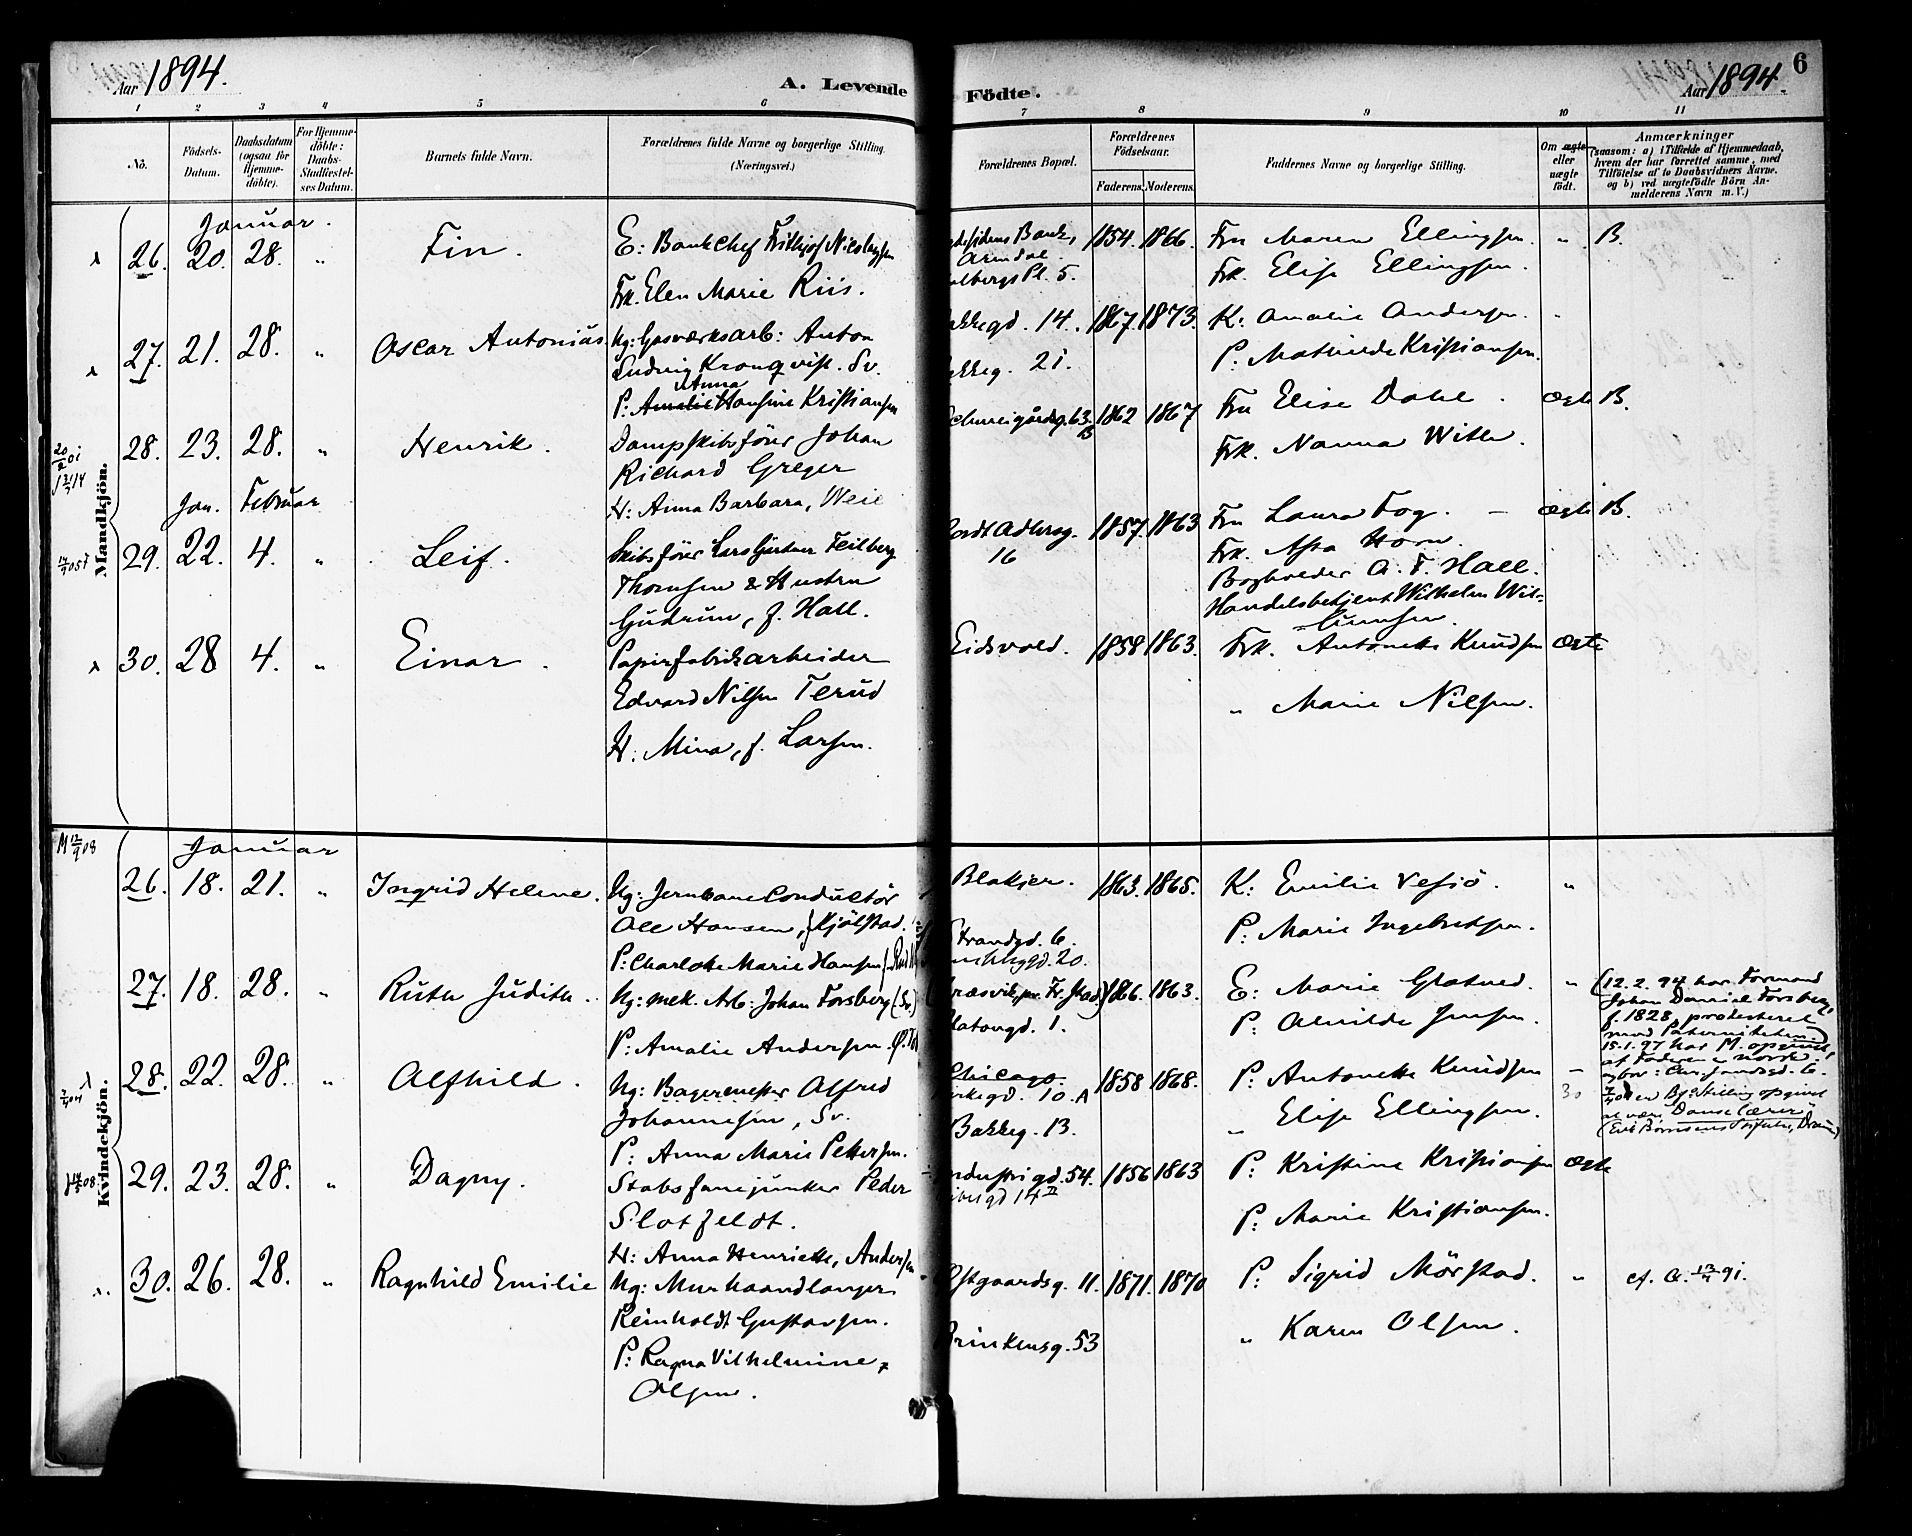 Aar 1894.
A. Levende
Födte.
Aar 1894.
6
1 2 3 4 5 6 7 8 9 10 11
No.
Födsels-Datum.
Daabsdatum (ogsaa for Hjemme-döbte).
For Hjemme-döbte: Daabs-Stadfæstel-ses Datum.
Barnets fulde Navn.
Forældrenes fulde Navne og borgerlige Stilling. (Næringsvei.)
Forældrenes Bopæl.
Forældrenes Födselsaar.
Faderens. Moderens.
Faddernes Navne og borgerlige Stilling.
Om ægte eller uægte födt.
Anmærkninger
(saasom: a) i Tilfælde af Hjemmedaab, hvem der har forrettet samme, med Tilföielse af to Daabsvidners Navne. og b) ved uægtefödte Börn An-melderens Navn m. V.)
Mandkjön.
Januar.
26. 20. 28. „ Fin. E: Bankchef Frithjof Nicolaysen 1854. 1866. Fru Maren Ellingsen. „ B.
Arendal.
Frk. Elen Marie Riis. Pl. 5. Frk. Elise Ellingsen.
27. 21. 28. „ Oscar Antonius. Ug: Gasværksarb: Anton 14. 1867. 1873. K: Amalie Andersen. „
Ludvig Kronqvist. Sv. 21. P. Mathilde Kristiansen.
Anna
P: Amalie Hansine Kristiansen
28. 23. 28. „ Henrik. Dampskibsförer Johan 63 B 1862 1867 Fru Elise Dahl. Ægte B.
Richard Greger Frk. Nanna With.
H: Anna Barbara, Weie
Jan. Februar
29. 22. 4. „ Leif. Skibsförer Lars Gjertner Feilberg 16 1857. 1863 Fru Laura Fog. — Ægte B.
Thomsen & Hustru Frk. Asta Horn.
Gudrun, f. Hall. Bogholder A. F. Hall.
Handelsbetjent Wilhelm Wil-
30. 28 4. „ Einar. Papirfabrikarbeider Eidsvold. 1858 1863. Frk. Antonette Knudsen Ægte
Edvard Nilsen Terud „ Marie Nilsen.
H. Mina, f. Larsen.
Kvindekjön.
Januar
26. 18. 21. „ Ingrid Helene. Ug: Jernbaneconductör Blakjer. 1863. 1865. K: Emilie Vesjö. „
Ole Hansen, Kjölstad. Strandgd. 6. P: Marie Ingebretsen.
P: Charlotte Marie Hansen 20.
27. 18. 28. „ Ruth Judith. Ug: mek. Arb: Johan Forsberg (Sv.) 1866. 1863. E: Marie Glatved. „ (12.2.94 har Formand
Johan Daniel Forsberg,
P: Amalie Andersen. Platougd. 1. P: Alvilde Jensen. f. 1828, protesteret
mod Paterniteten.)
15.1.97 har M. opgivet
at Faderen er norsk.
28. 22. 28. „ Alfhild. Ug: Bagermester Alfred Chicago. 1858 1868. P: Antonette Knudsen —
Johannesen, Sv. 10. A „ Elise Ellingsen. 30
P: Anna Marie Pettersen. Bakkeg. 13. Danselærer
29. 23. 28. „ Dagny. Stabsfanejunker Peder Industrigd. 54. 1856 1863 P: Kristine Kristiansen Ægte
Slotfeldt. 14 II P: Marie Kristiansen.
H: Anna Henriette, Andersen
30. 26. 28. „ Ragnhild Emilie Ug: Murhaandlanger 11. 1871. 1870 P: Sigrid Mörstad. „ cf. A. 13/4 91.
Reinholdt Gustavsen. Brinkensg. 53 „ Karen Olsen.
P: Ragna Vilhelmine,
Olsen.